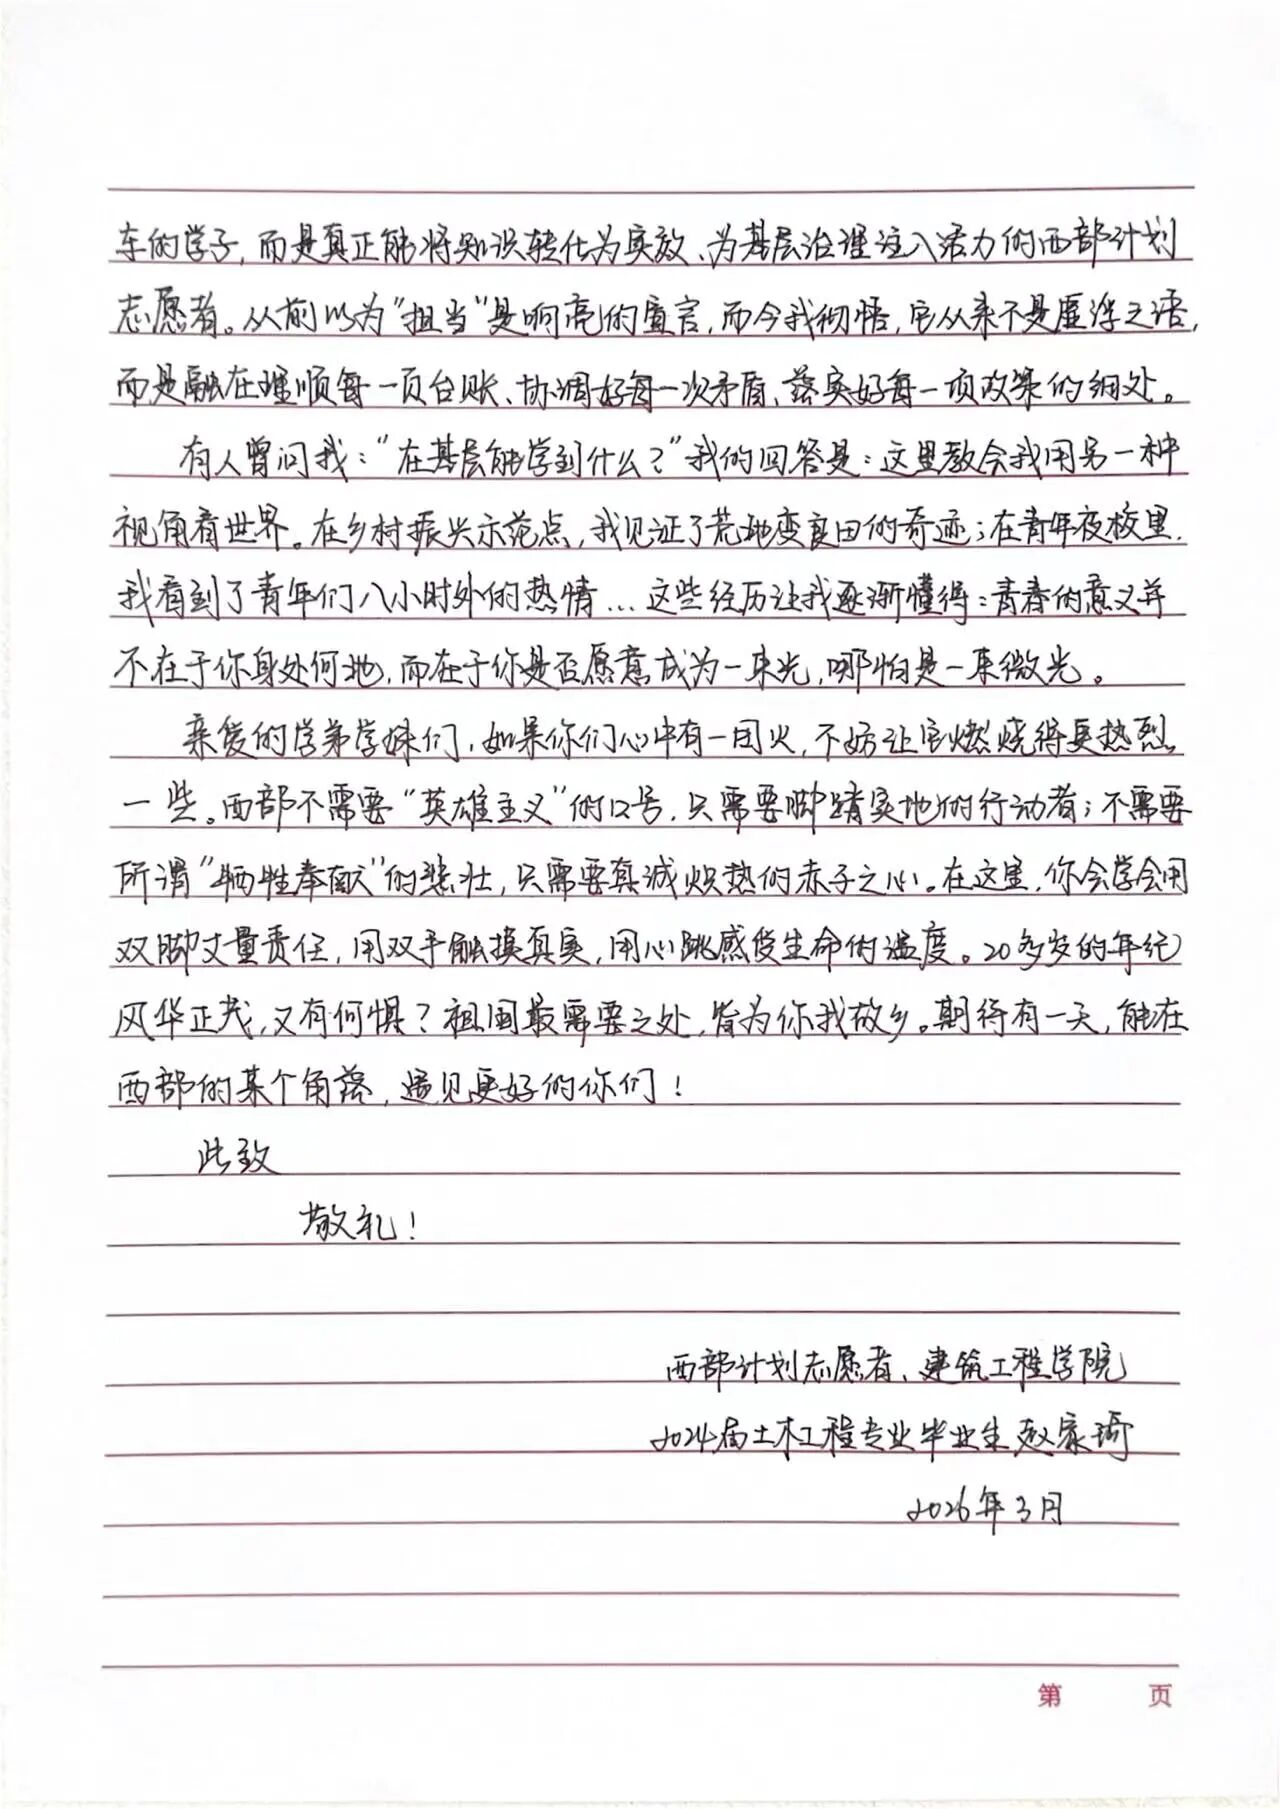 车的学子，而是真正能将知识转化为实效、为基层治理注入活力的西部计划
志愿者。从前以为“担当”是响亮的宣言，而今我彻悟，它从来不是虚浮之语，
而是融在理顺每一页台账、协调好每一次矛盾、落实好每一项政策的细处。
有人曾问我：“在基层能学到什么？”我的回答是：这里教会我用另一种
视角看世界。在乡村振兴示范点，我见证了荒地变良田的奇迹；在青年夜校里，
我看到了青年们八小时外的热情…这些经历让我逐渐懂得：青春的意义并
不在于你身处何地，而在于你是否愿意成为一束光，哪怕是一束微光。
亲爱的学弟学妹们，如果你们心中有一团火，不妨让它燃烧得更热烈
一些。西部不需要“英雄主义”的口号，只需要脚踏实地的行动者；不需要
所谓“牺牲奉献”的悲壮，只需要真诚炽热的赤子之心。在这里，你会学会用
双脚丈量责任，用双手触摸真实，用心跳感受生命的温度。20多岁的年纪
风华正茂，又有何惧？祖国最需要之处，皆为你我故乡。期待有一天，能在
西部的某个角落，遇见更好的你们！
此致
敬礼！
西部计划志愿者、建筑工程学院
2024届土木工程专业毕业生赵家琦
2026年3月
第 页